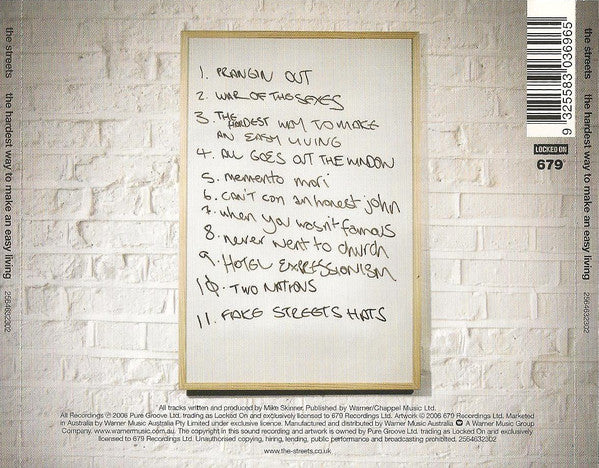 the streets the hardest way to make an easy living 2564632302
1. PRANGIN OUT
2. WAR OF THE SEXES
3. THE HARDEST WAY TO MAKE
AN EASY LIVING
4. ALL GOES OUT THE WINDOW
5. memento mori
6. can't con an honest john
7. when you wasn't famous
8. never went to church
9. HOTEL EXPRESSIONISM
10. TWO NATIONS
11. FAKE STREETS HATS
9 325583 036965
LOCKED ON
679
the streets the hardest way to make an easy living 2564632302
All tracks written and produced by Mike Skinner. Published by Warner/Chappel Music Ltd.
All Recordings ℗ 2006 Pure Groove Ltd. trading as Locked On and exclusively licensed to 679 Recordings Ltd. Artwork © 2006 679 Recordings Ltd. Marketed
in Australia by Warner Music Australia Pty Limited under exclusive licence. Manufactured and distributed by Warner Music Australia A Warner Music Group
Company. www.warnermusic.com.au. The copyright in this sound recording and artwork is owned by Pure Groove Ltd. trading as Locked On and exclusively
licensed to 679 Recordings Ltd. Unauthorised copying, hiring, lending, public performance and broadcasting prohibited. 2564632302
www.the-streets.co.uk